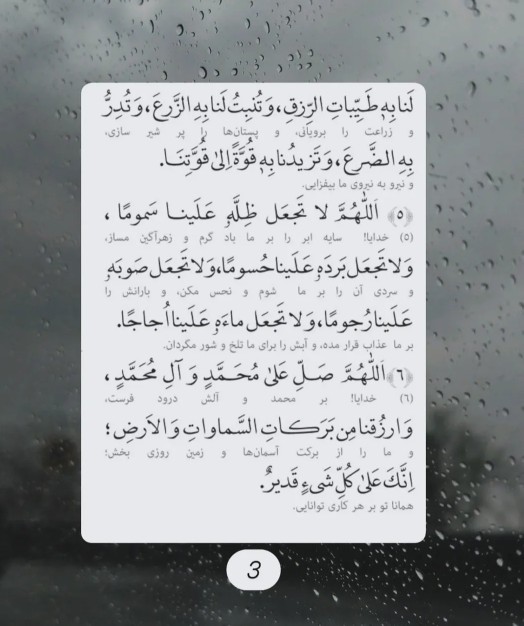 لَنا بِهِ طَيِّباتِ الرِّزقِ، وَتُنبِتُ لَنا بِهِ الزَّرعَ، وَتُدِرُّ
و زراعت را برویانی، و پستان‌ها را پر شیر سازی،
بِهِ الضَّرعَ، وَتَزيدُنا بِهِ قُوَّةً اِلىٰ قُوَّتِنَا.
و نیرو به نیروی ما بیفزایی.
﴿۵﴾ اَللّٰهُمَّ لا تَجعَل ظِلَّهُ عَلَينا سَمومًا ،
(۵) خدایا! سایه ابر را بر ما باد گرم و زهرآگین مساز،
وَلا تَجعَل بَردَهُ عَلَينا حُسومًا، وَلا تَجعَل صَوبَهُ
و سردی آن را بر ما شوم و نحس مکن، و بارانش را
عَلَينا رُجومًا، وَلا تَجعَل ماءَهُ عَلَينا اُجاجًا.
بر ما عذاب قرار مده، و آبش را برای ما تلخ و شور مگردان.
﴿۶﴾ اَللّٰهُمَّ صَلِّ عَلىٰ مُحَمَّدٍ وَ آلِ مُحَمَّدٍ ،
(۶) خدایا! بر محمد و آلش درود فرست،
وَ ارزُقنا مِن بَرَكاتِ السَّماواتِ وَ الاَرضِ ؛
و ما را از برکت آسمان‌ها و زمین روزی بخش؛
اِنَّكَ عَلىٰ كُلِّ شَیءٍ قَديرٌ.
همانا تو بر هر کاری توانایی.
3